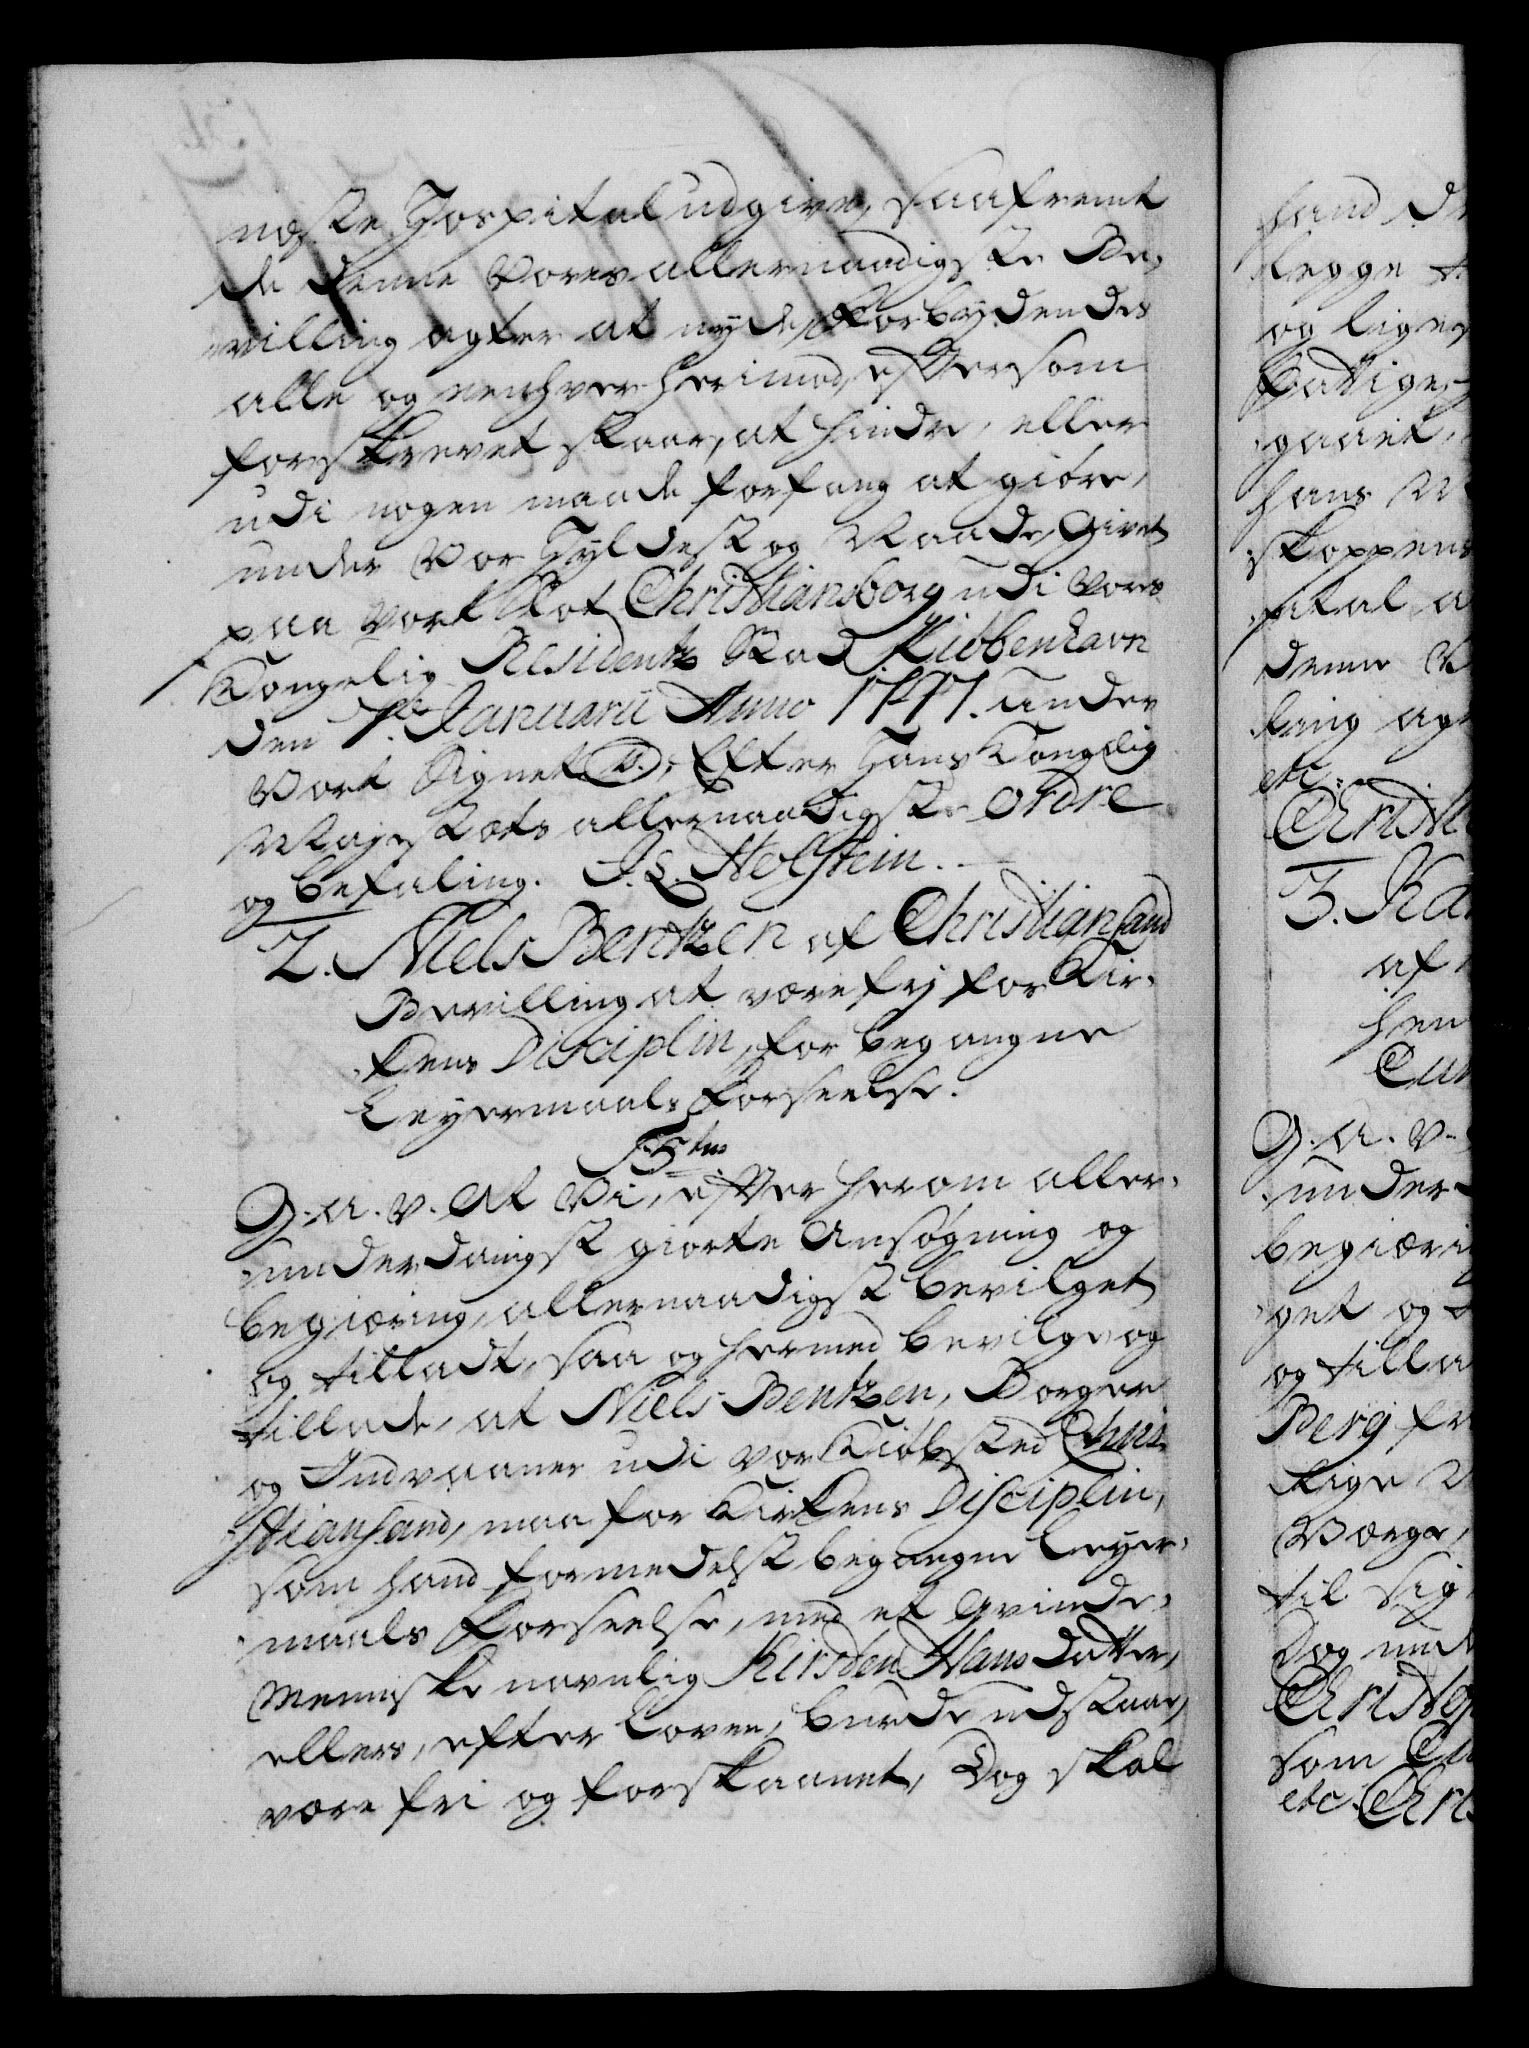 næste Hospital udgive, saafremt
de denne Vores allernaadigste Be-
villing agter at nyde, Forbydendes
alle og eenhver herimod, eftersom
forskrevet staar, at hindre, eller
udi nogen maade forfang at giöre,
under Vor Hyldest og Naade, Givet
paa Vort Slot Christiansborg udi Vores
Kongelig Residentz Stad Kiöbenhavn
den Januarii Anno under
Vort Signet Efter Hans Kongelig
Mayestæts allernaadigste Ordre
og befaling. J. L. Holstein.
2. Niels Bentzen af Christiansand
Bevilling at være frj for Kir-
kens Disciplin, for begangne
Leyermaals Forseelse.
G. A. V. At Vi, efter herom aller-
underdanigst giorte Ansøgning og
begiæring, allernaadigst bevilget
og tilladt, saa og hermed bevilge og
tillade, at Niels Bentzen, Borger
og Indvaaner udi Vor Kiöbsted Chri-
stiansand, maa for Kirkens Disciplin,
som hand formedelst begangne Leyer-
maals Forseelse, med et Qvinde-
Menniske navnlig Kirsten Hans Datter,
ellers, efter Loven, burde udstaae,
være fri og forskaanet, Dog skal
hand
legge
og
Fattige
gaaet,
hans
denne
etc:
3.
af
G. A. V.
under-
begiæring
get og
og tilla
Berg
lige
Verge,
til sig
Dog
som
etc: